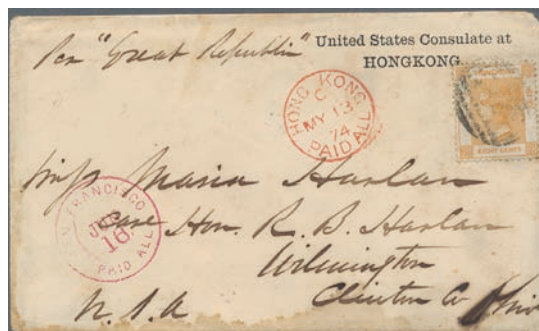 Per "Great Republic"
United States Consulate at
HONGKONG.
HONG KONG
C
MY 13
74
PAID ALL
EIGHT CENTS
Miss Maria Harlan
Care Hon. R. B. Harlan
Wilmington
Clinton Co Ohio
U. S. A
FRANCISCO
16
PAID ALL